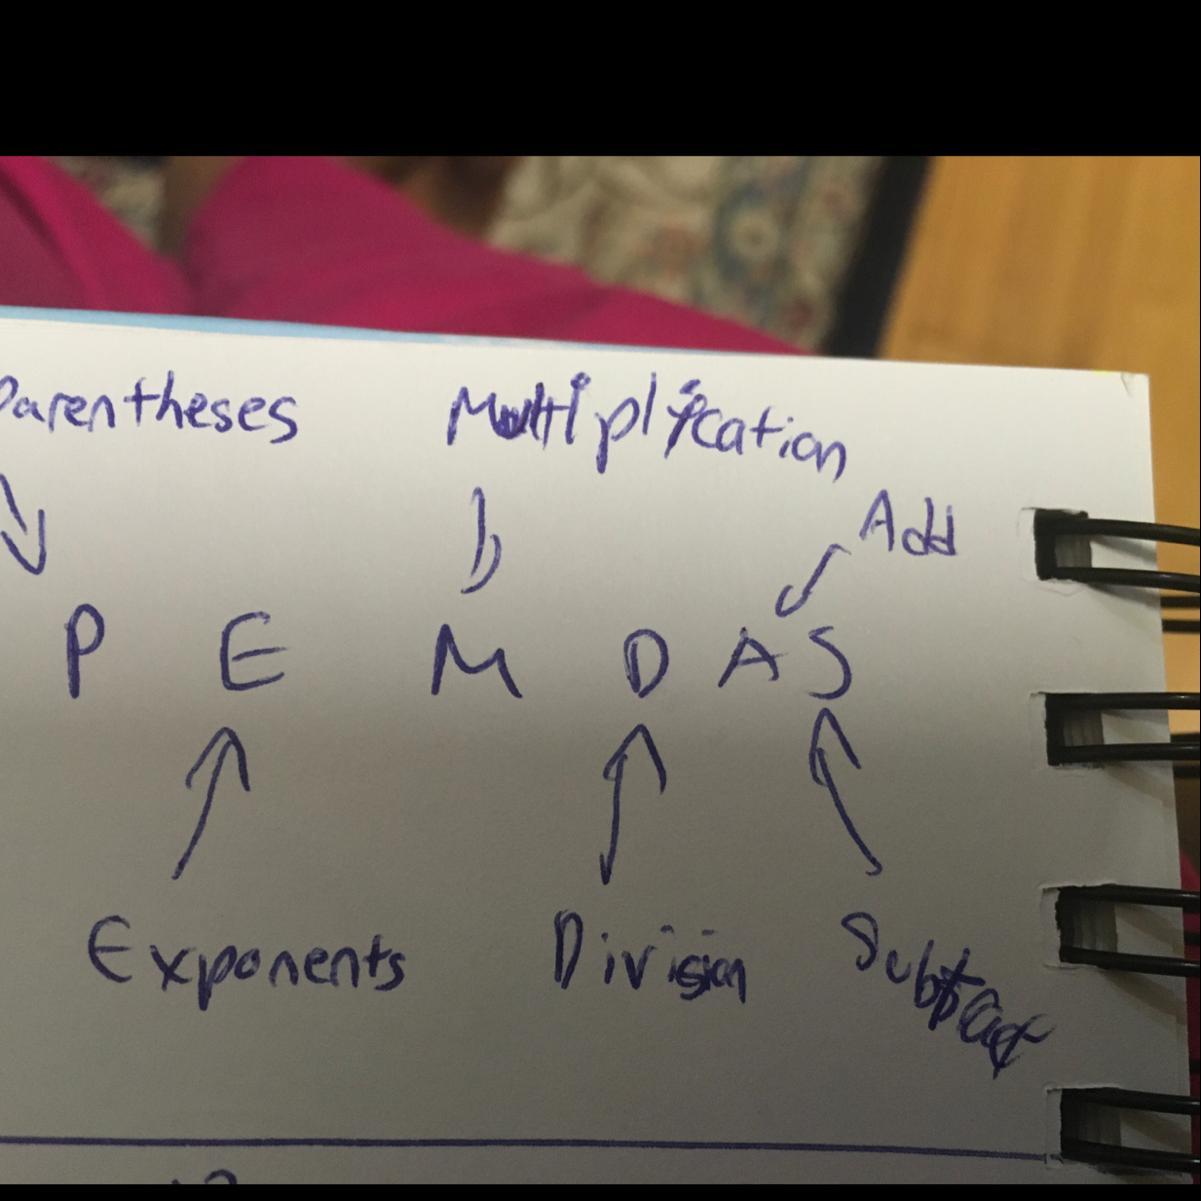 Parentheses Multiplication
Add
P E M D A S
Exponents Division Subtract